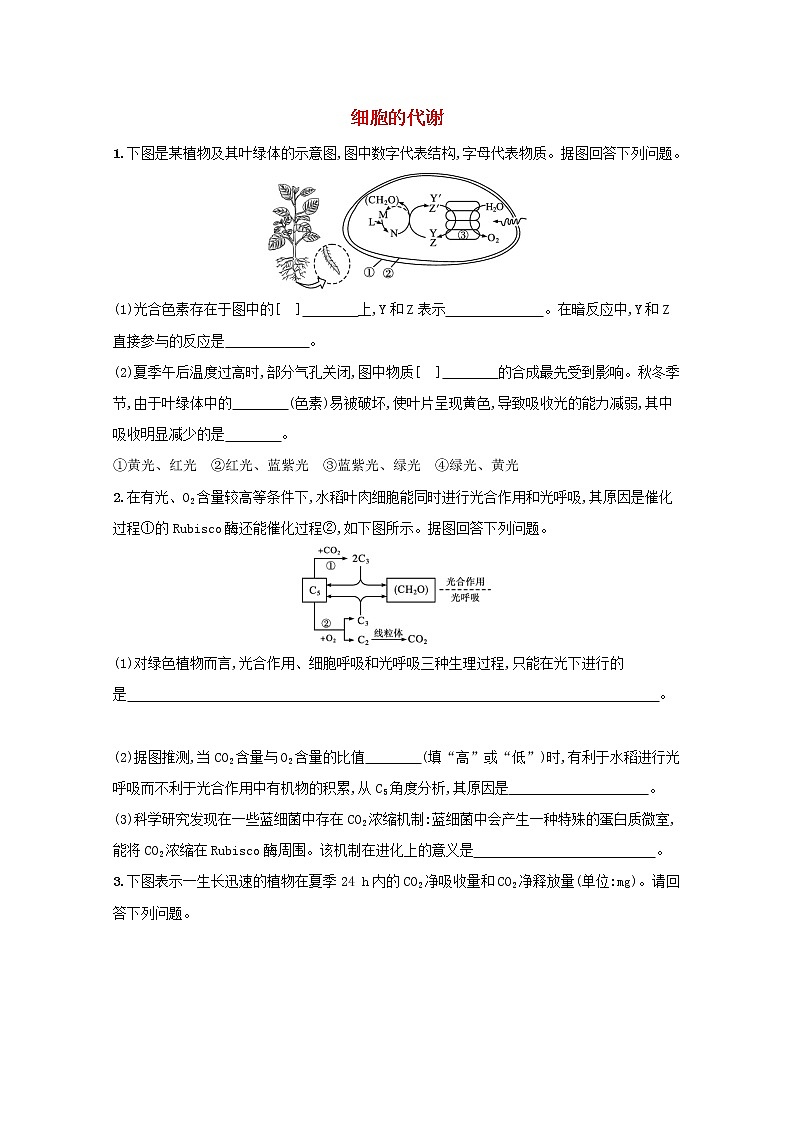 细胞的代谢
1.下图是某植物及其叶绿体的示意图,图中数字代表结构,字母代表物质。据图回答下列问题。
(CH₂O) M L N Y′ Z′ Y Z ③ H₂O O₂ ① ②
(1)光合色素存在于图中的[　]________上,Y和Z表示______________。在暗反应中,Y和Z
直接参与的反应是____________。
(2)夏季午后温度过高时,部分气孔关闭,图中物质[　]________的合成最先受到影响。秋冬季
节,由于叶绿体中的________(色素)易被破坏,使叶片呈现黄色,导致吸收光的能力减弱,其中
吸收明显减少的是________。
①黄光、红光　②红光、蓝紫光　③蓝紫光、绿光　④绿光、黄光
2.在有光、O₂含量较高等条件下,水稻叶肉细胞能同时进行光合作用和光呼吸,其原因是催化
过程①的Rubisco酶还能催化过程②,如下图所示。据图回答下列问题。
+CO₂ ① 2C₃
C₅ (CH₂O) 光合作用 光呼吸
② +O₂ C₃ C₂ 线粒体 CO₂
(1)对绿色植物而言,光合作用、细胞呼吸和光呼吸三种生理过程,只能在光下进行的
是____________________________________________________________________________。
(2)据图推测,当CO₂含量与O₂含量的比值________(填“高”或“低”)时,有利于水稻进行光
呼吸而不利于光合作用中有机物的积累,从C₅角度分析,其原因是____________________。
(3)科学研究发现在一些蓝细菌中存在CO₂浓缩机制:蓝细菌中会产生一种特殊的蛋白质微室,
能将CO₂浓缩在Rubisco酶周围。该机制在进化上的意义是__________________________。
3.下图表示一生长迅速的植物在夏季24 h内的CO₂净吸收量和CO₂净释放量(单位:mg)。请回
答下列问题。